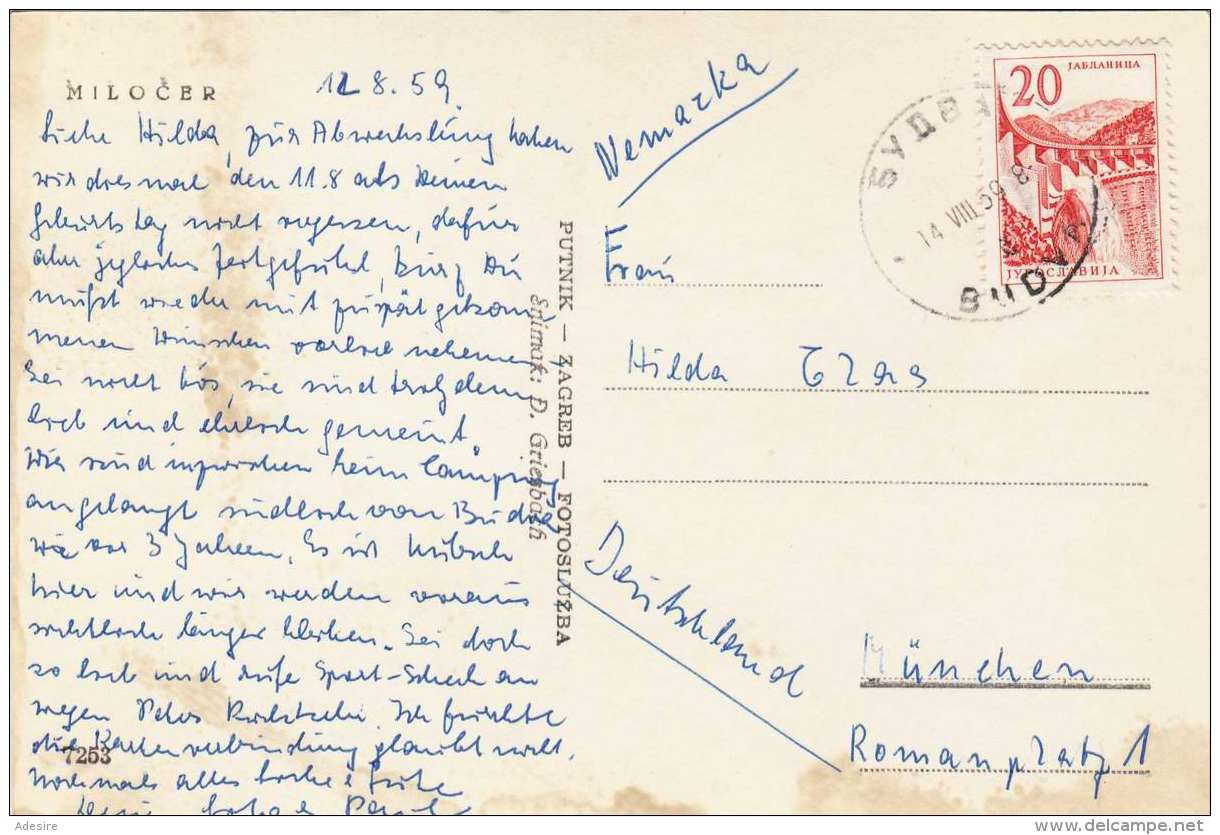 MILOČER
12 8.59.
Liebe Hilda, zur Abwechslung haben
wir diesmal den 11.8 als Deinen
Geburtstag nicht vergessen, dafür
aber jegliches Zeitgefühl, kurz Du
mußt wieder mit zu spät gekom
menen Wünschen vorlieb nehmen
Sei nicht bös, sie sind trotzdem
lieb und ehrlich gemeint.
Wir sind inzwischen beim Camping
angelangt südlich von Budva,
wie vor 3 Jahren. Es ist hübsch
hier und wir werden voraus
sichtlich länger bleiben. Sei doch
so lieb und rufe Sport-Scheck an
wegen Peters
Ich fürchte
die Kartenverbindung klappt nicht.
Nochmals alles Liebe & Gute
Dein
7253
PUTNIK — ZAGREB — FOTOSLUŽBA
Snimak: D. Griesbach
Nemačka
Frau
Hilda
Deutschland
München
Romanplatz 1
20
ЈАБЛАНИЦА
ЈУГОСЛАВИЈА
БУДВА
14 VIII 59 8
BUDVA
Adesire
delcampe.net